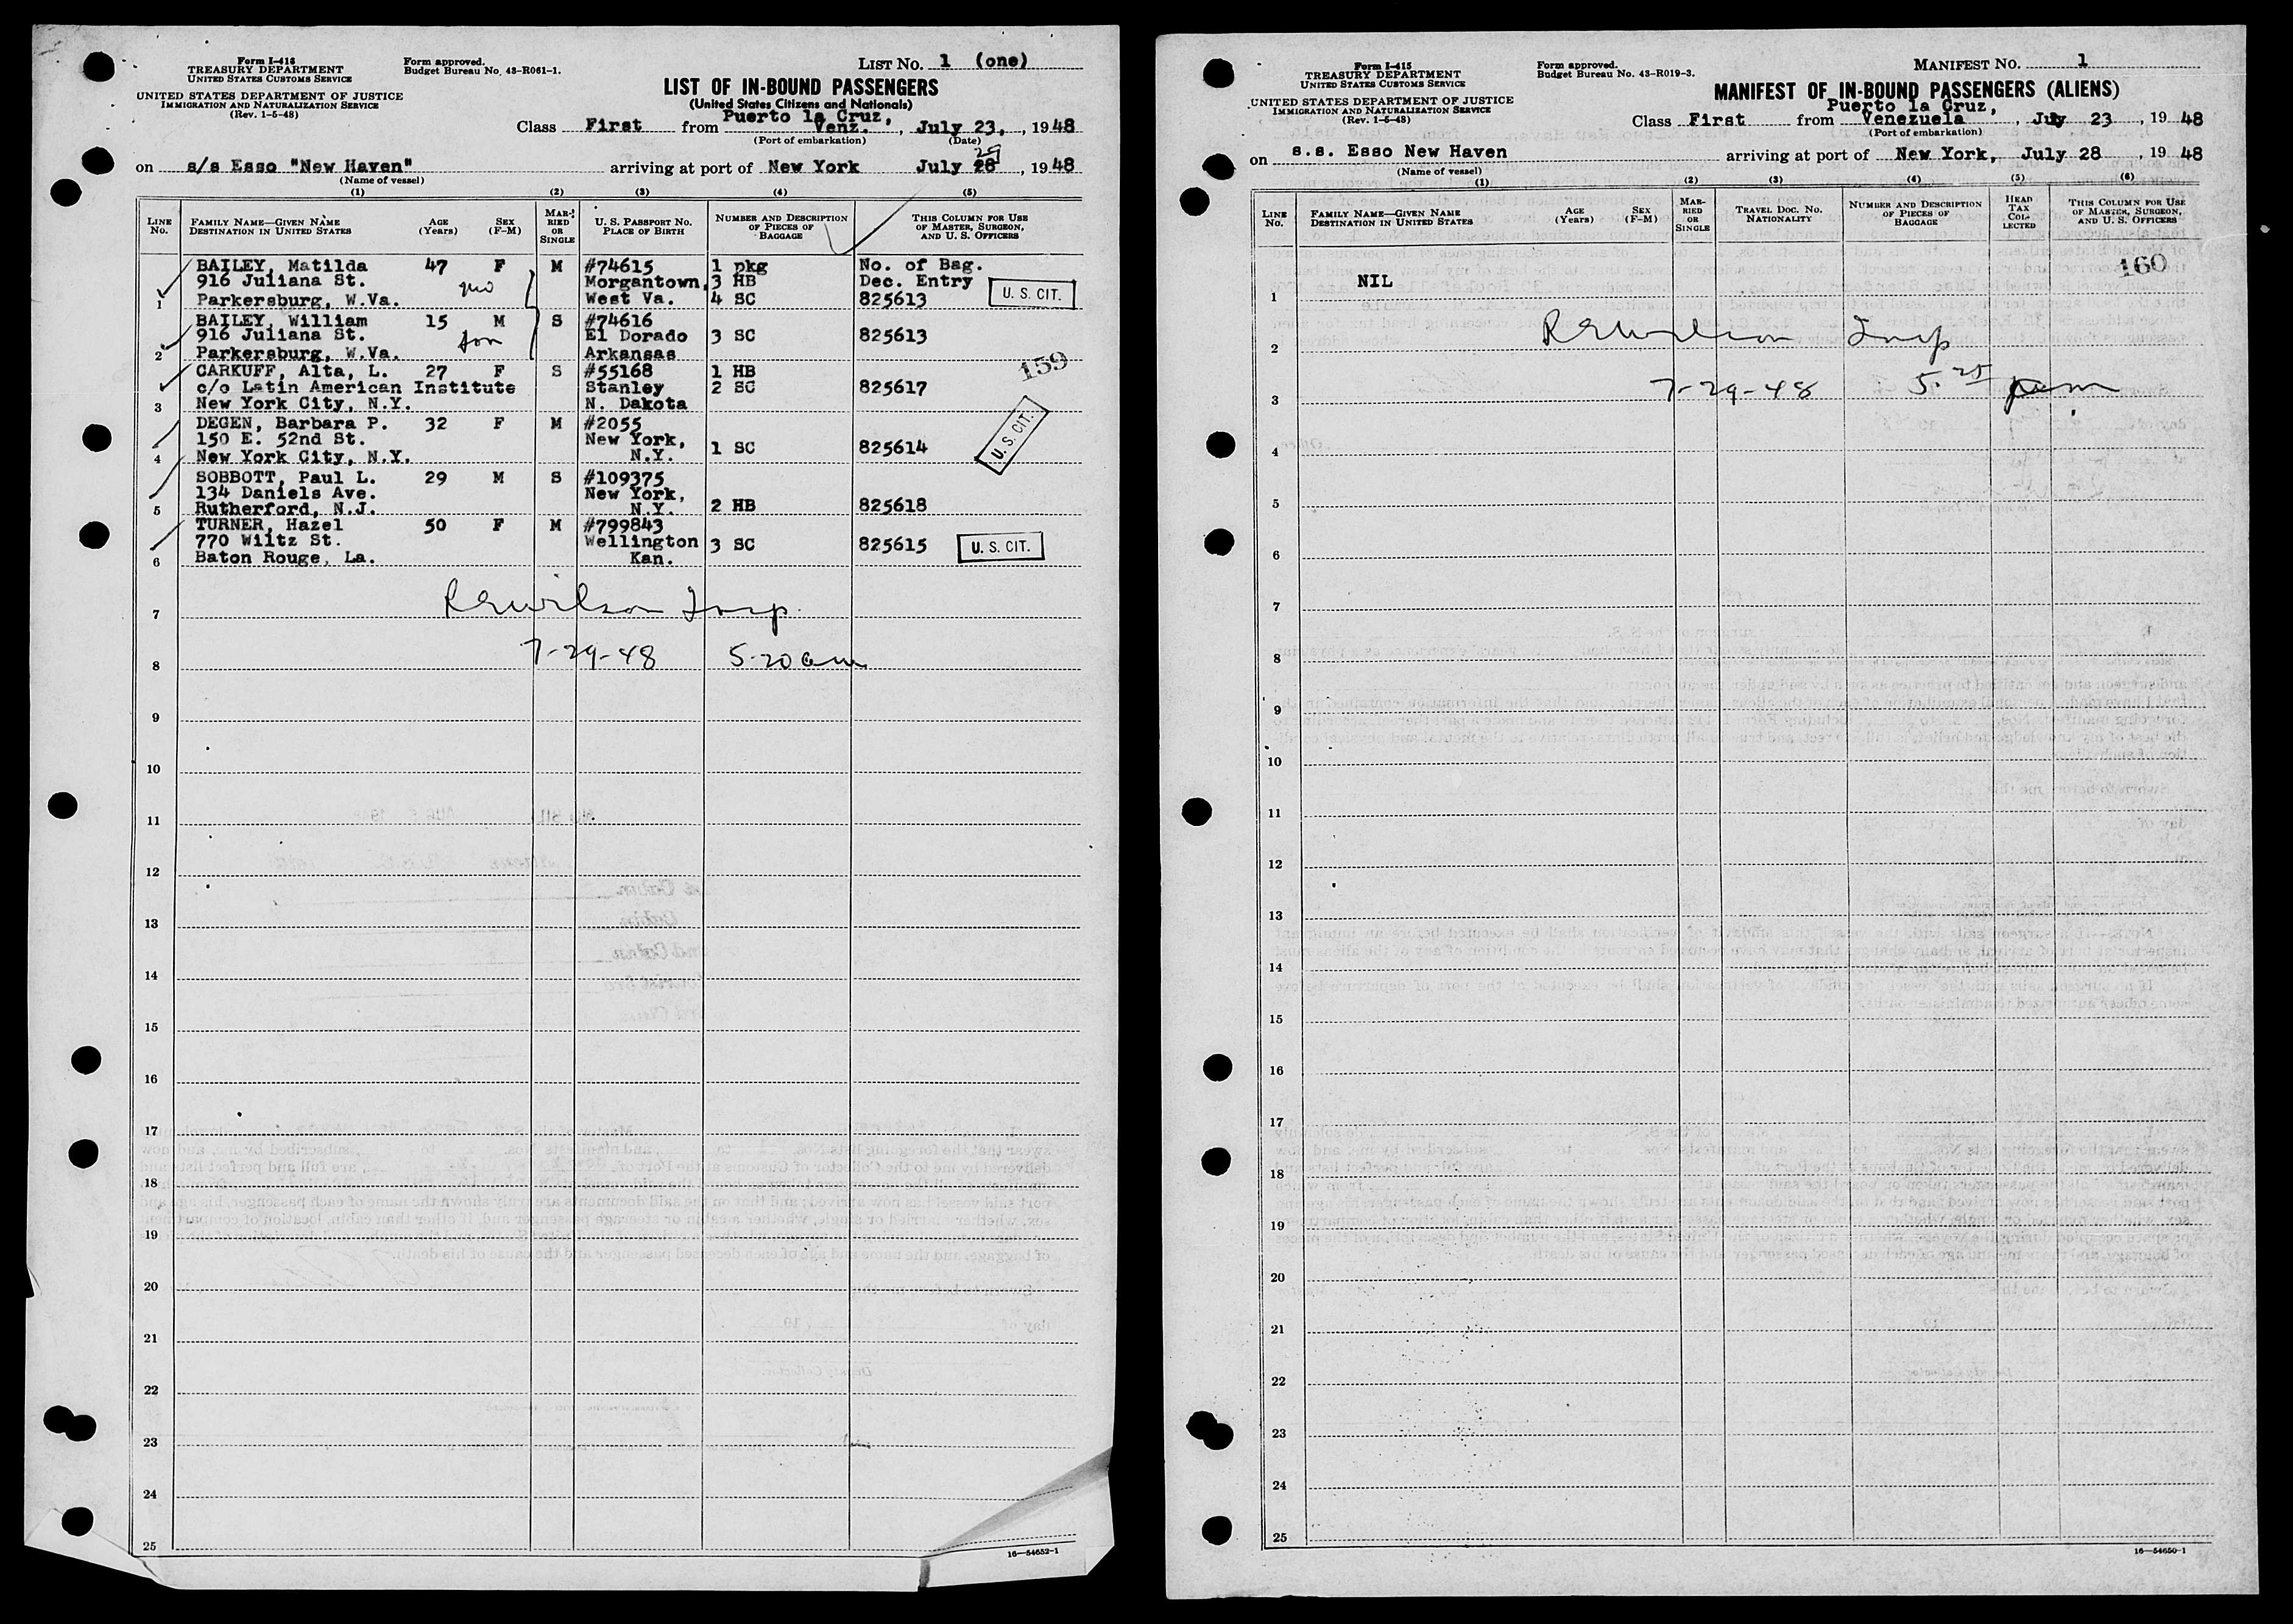 Form I-416
TREASURY DEPARTMENT
UNITED STATES CUSTOMS SERVICE
UNITED STATES DEPARTMENT OF JUSTICE
IMMIGRATION AND NATURALIZATION SERVICE
(Rev. 1-5-48)
Form approved.
Budget Bureau No. 43-R061-1.
LIST NO. 1 (one)
LIST OF IN-BOUND PASSENGERS
(United States Citizens and Nationals)
Class First from Puerto la Cruz, Venz., July 23, 1948
(Port of embarkation) (Date)
on s/s Esso "New Haven" arriving at port of New York July 28 29, 1948
(Name of vessel)
(1) (2) (3) (4) (5)
LINE No.
FAMILY NAME—GIVEN NAME
DESTINATION IN UNITED STATES
AGE (Years)
SEX (F-M)
MARRIED OR SINGLE
U. S. PASSPORT NO.
PLACE OF BIRTH
NUMBER AND DESCRIPTION OF PIECES OF BAGGAGE
THIS COLUMN FOR USE OF MASTER, SURGEON, AND U. S. OFFICERS
BAILEY, Matilda 47 F M #74615 1 pkg No. of Bag.
916 Juliana St. Morgantown, 3 HB Dec. Entry
1 Parkersburg, W.Va. West Va. 4 SC 825613 U. S. CIT.
BAILEY, William 15 M S #74616
916 Juliana St. son El Dorado 3 SC 825613
2 Parkersburg, W.Va. Arkansas
159
CARKUFF, Alta, L. 27 F S #55168 1 HB
c/o Latin American Institute Stanley 2 SC 825617
3 New York City, N.Y. N. Dakota
DEGEN, Barbara P. 32 F M #2055 U. S. CIT.
150 E. 52nd St. New York, 1 SC 825614
4 New York City, N.Y. N.Y.
SOBBOTT, Paul L. 29 M S #109375
134 Daniels Ave. New York,
5 Rutherford, N.J. N.Y. 2 HB 825618
TURNER, Hazel 50 F M #799843
770 Wiltz St. Wellington 3 SC 825615 U. S. CIT.
6 Baton Rouge, La. Kan.
7 REWilson Insp.
8 7-29-48 5-20 am
9
10
11
12
13
14
15
16
17
18
19
20
21
22
23
24
25
16—54652-1
Form I-415
TREASURY DEPARTMENT
UNITED STATES CUSTOMS SERVICE
UNITED STATES DEPARTMENT OF JUSTICE
IMMIGRATION AND NATURALIZATION SERVICE
(Rev. 1-5-48)
Form approved.
Budget Bureau No. 43-R019-3.
MANIFEST NO. 1
MANIFEST OF IN-BOUND PASSENGERS (ALIENS)
Class First from Puerto la Cruz, Venezuela, July 23, 1948
(Port of embarkation)
on s.s. Esso New Haven arriving at port of New York, July 28, 1948
(Name of vessel)
(1) (2) (3) (4) (5) (6)
LINE No.
FAMILY NAME—GIVEN NAME
DESTINATION IN UNITED STATES
AGE (Years)
SEX (F-M)
MARRIED OR SINGLE
TRAVEL DOC. NO.
NATIONALITY
NUMBER AND DESCRIPTION OF PIECES OF BAGGAGE
HEAD TAX COLLECTED
THIS COLUMN FOR USE OF MASTER, SURGEON, AND U. S. OFFICERS
160
1 NIL
2 REWilson Insp
3 7-29-48 5.25
4
5
6
7
8
9
10
11
12
13
14
15
16
17
18
19
20
21
22
23
24
25
16—54650-1